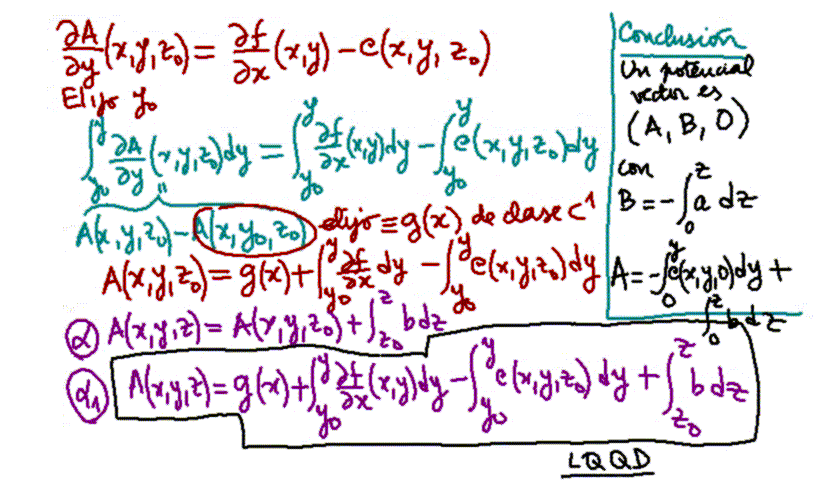 ∂A/∂y (x,y,z₀) = ∂f/∂x (x,y) − c(x,y,z₀)
Elijo y₀
∫_{y₀}^{y} ∂A/∂y (x,y,z₀)dy = ∫_{y₀}^{y} ∂f/∂x (x,y)dy − ∫_{y₀}^{y} c(x,y,z₀)dy
"
A(x,y,z₀) − A(x,y₀,z₀) elijo ≡ g(x) de clase C¹
A(x,y,z₀) = g(x) + ∫_{y₀}^{y} ∂f/∂x dy − ∫_{y₀}^{y} c(x,y,z₀)dy
α A(x,y,z) = A(x,y,z₀) + ∫_{z₀}^{z} b dz
α₁ A(x,y,z) = g(x) + ∫_{y₀}^{y} ∂f/∂x (x,y)dy − ∫_{y₀}^{y} c(x,y,z₀) dy + ∫_{z₀}^{z} b dz
LQQD
Conclusión
Un potencial
vector es
(A, B, 0)
con
B = −∫_{0}^{z} a dz
A = −∫_{0}^{y} c(x,y,0)dy +
∫_{0}^{z} b dz